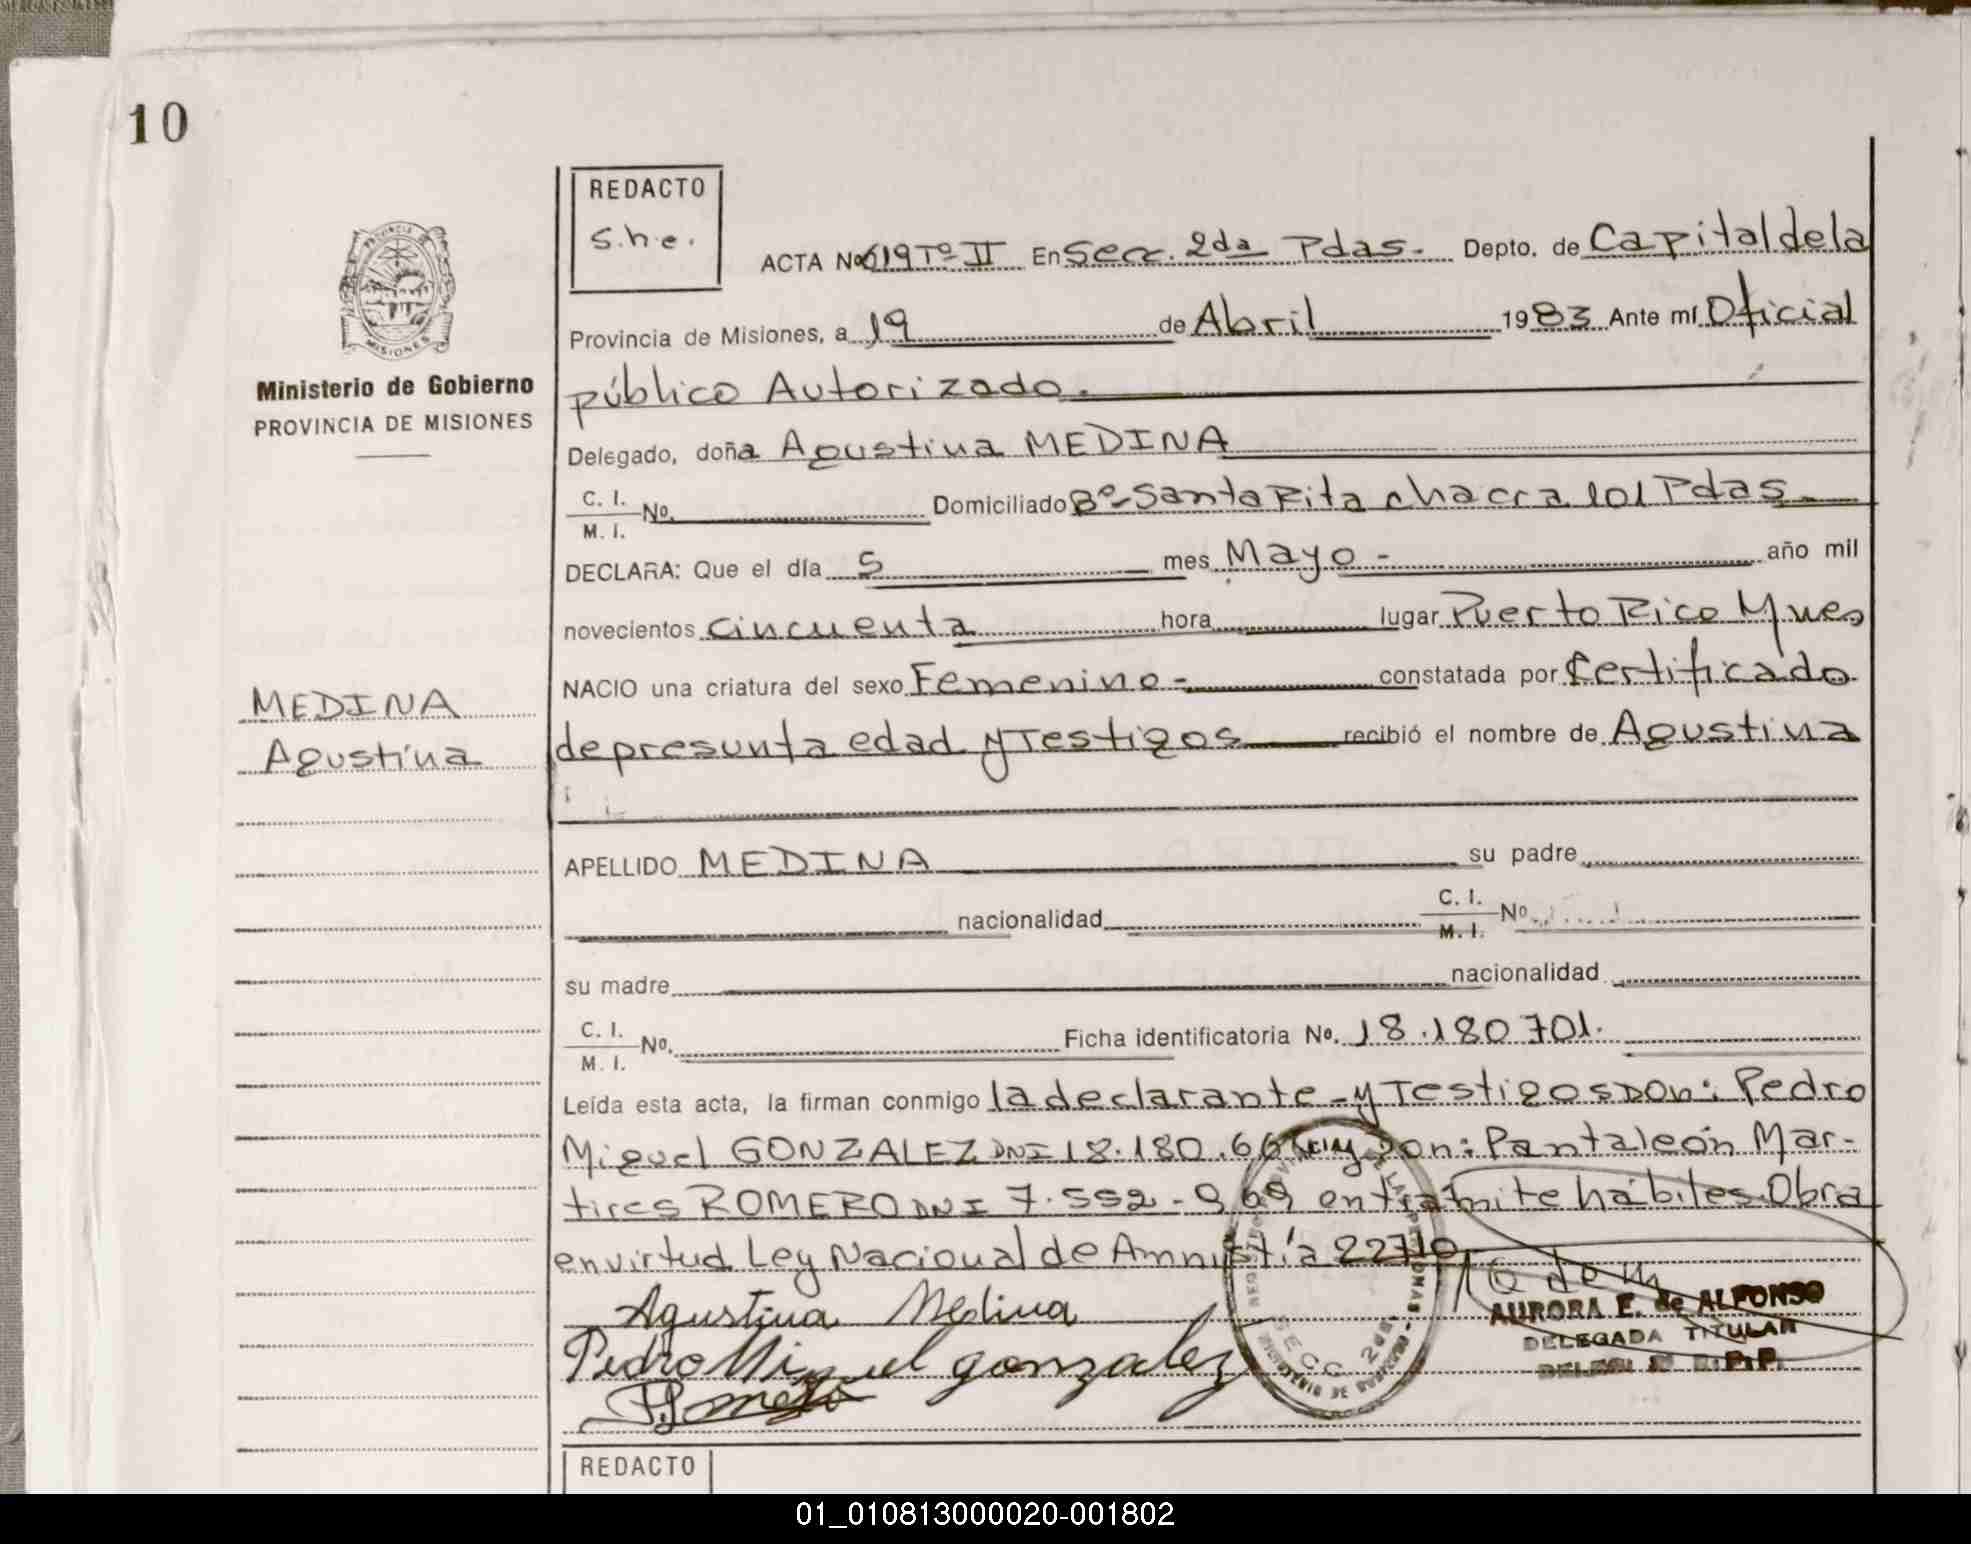 10
REDACTO
S.h.e.
ACTA No 619 Tº II En Secc. 2da Pdas. Depto. de Capital de la
Provincia de Misiones, a 19 de Abril 1983 Ante mí Oficial
público Autorizado.
Delegado, doña Agustina MEDINA
C. I.
M. I. No. Domiciliado Bº Santa Rita chacra 101 Pdas.
DECLARA: Que el día 5 mes Mayo - año mil
novecientos cincuenta hora lugar Puerto Rico Mnes
NACIO una criatura del sexo Femenino - constatada por Certificado
de presunta edad y Testigos recibió el nombre de Agustina
APELLIDO MEDINA su padre
nacionalidad C. I.
M. I. No.
su madre nacionalidad
C. I.
M. I. No. Ficha identificatoria No. 18.180.701.
Leída esta acta, la firman conmigo la declarante - y Testigos Don: Pedro
Miguel GONZALEZ DNI 18.180.66 y Don: Pantaleón Mar-
tires ROMERO DNI 7.552-969 en tramite hábiles. Obra
en virtud Ley Nacional de Amnistía 22710
Agustina Medina
Pedro Miguel gonzalez
AURORA E. de ALFONSO
DELEGADA TITULAR
SECC. 2da
PROVINCIA DE MISIONES
Ministerio de Gobierno
PROVINCIA DE MISIONES
MEDINA
Agustina
REDACTO
01_010813000020-001802